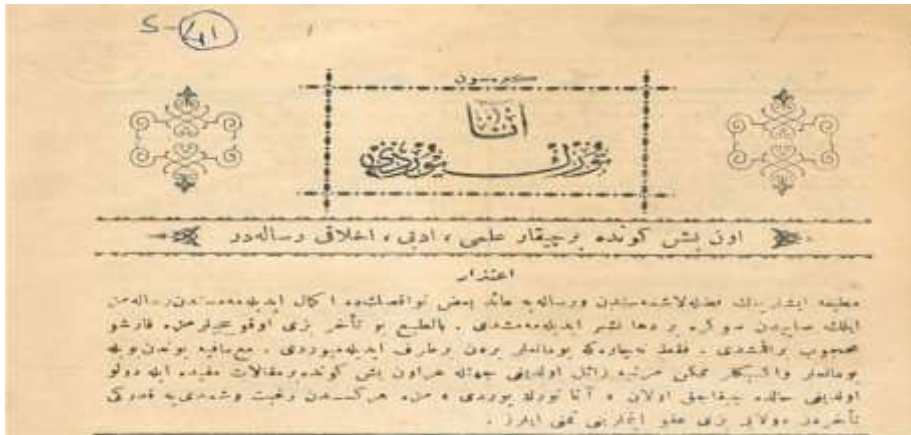 S-41
كره‌سون
آنا
تورك يوردى
اون بش كونده بر چيقار علمى ، ادبى ، اخلاقى رساله‌در
اعتذار
مطبعه ايشلرينك فضله‌لاشمه‌سندن ورساله‌يه عائد بعض نواقصك‌ده اكمال ايديله‌مه‌مسندن رساله‌من
ايلك صاييدن صوكره بر دها نشر ايديله‌مه‌مشدى . بالطبع بو تأخر بزى اوقويجيلرمزه قارشو
محجوب براقمشدى . فقط نه‌چاره‌كه بو مانعلر بردن برطرف ايديله‌ميوردى . مع‌مافيه بوندن بويله
بو مانعلر مرتبه زائل اولديغى جهتله هر اون بش كونده بر مقالات مفيده ايله دولو
اولديغى حالده چيقاجق اولان « آنا تورك يوردى » منه هركسدن رغبت وشمدى‌يه قدركى
تأخردن دولايى بزى عفو ايتمه‌لرينى تمنى ايلرز .